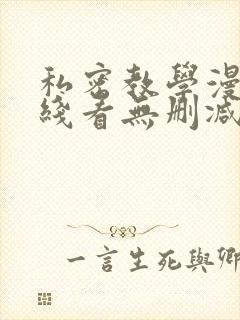 私密教學漫
綫看無删减
一言生死與卿